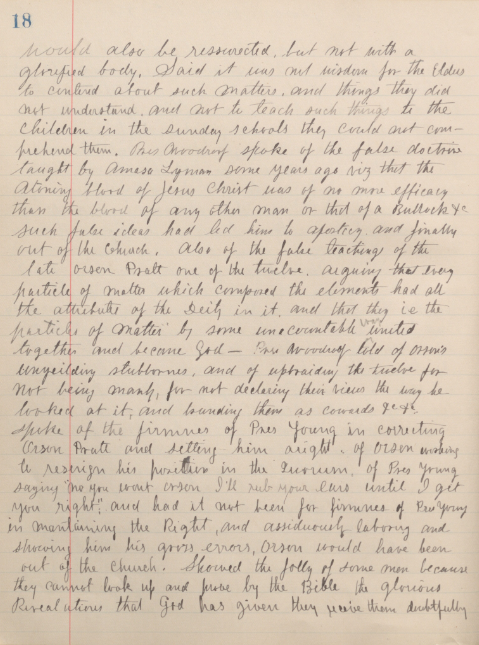 18
would also be ressurected, but not with a
glorefied body. Said it was not wisdom for the Elders
to contend about such matters, and things they did
not understand, and not to teach such things to the
children in the sunday schools they could not com-
prehend them. Pres Woodroof spoke of the false doctrine
taught by Amasa Lyman some years ago viz that the
Atoning blood of Jesus Christ was of no more efficacy
than the blood of any other man or that of a Bullock &c
such false ideas had led him to apostacy, and finally
out of the Church. Also of the false teachings of the
late Orson Pratt one of the twelve, arguing that every
particle of matter which composed the elements had all
the attributes of the Deity in it, and that they is the
particles of matter by some unocountable way united
together and became God — Pres Woodroof told of Orson's
unyeilding stubbornes, and of upbraiding the twelve for
not being manly, for not declaring their views the way he
looked at it, and branding them as cowards &c &c.
spoke of the firmnes of Pres Young in correcting
Orson Pratt and setting him aright, of Orson wishing
to resign his position in the Quorum, of Pres Young
saying "no you wont orson I'll rub your ears until I get
you right", and had it not been for firmnes of Pres Young
in mantaining the Right, and assiduously laboring and
showing him his gross errors, Orson would have been
out of the Church. Showed the folly of some men because
they cannot look up and prove by the Bible the glorious
Revealutions that God has given they receive them doubtfully